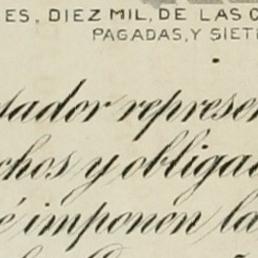 ES, DIEZ MIL, DE LAS C
PAGADAS, Y SIETE
tador represen
chos y obligac
é imponen la